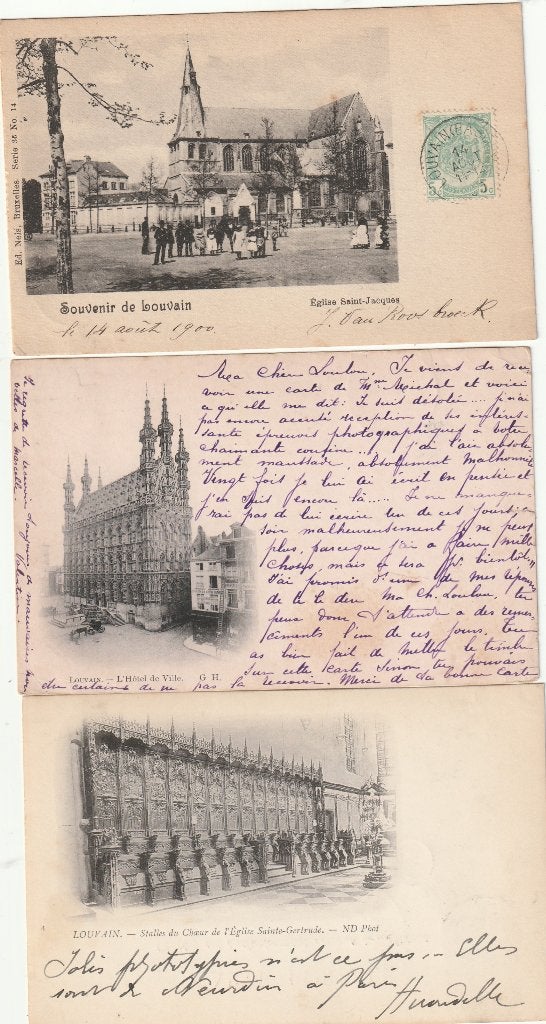 Ed. Nels, Bruxelles Serie 35 No. 14
LOUVAIN
5 C 5
Souvenir de Louvain
Église Saint-Jacques
le 14 août 1900
J. Van Roosbroeck
Ma Chère Loulou, Je viens de rece
voir une carte de Mme Michal et voici
ce qu'elle me dit: Je suis désolée.... je n'ai
pas encore accusé réception de ses intéres
sante épreuves photographiques à votre
charmante cousine..! j'ai l'air absolu
ment maussade, absolument malhonnête
Vingt fois je lui ai écrit en pensée et
j'en suis encore là..... Je ne manque
rai pas de lui écrire un de ces jours
soir malheureusement je ne peux
plus, parceque j'ai à faire mille
choses, mais ce sera pr bientôt.
J'ai promis d' de mes
de te le dire ma Ch. Loulou, tu
peux donc t'attendre à des remer
ciments l'un de ces jours. Tu
as bien fait de mettre le timbre
sur cette carte sinon tu pouvais
être certaine de ne pas la recevoir. Merci de ta bonne carte
Je regrette de recevoir toujours de mauvaises nou
velles de Marcelle. Valentine
LOUVAIN. – L'Hôtel de Ville. G. H.
LOUVAIN. — Stalles du Chœur de l'Église Sainte-Gertrude. — ND Phot
Jolies phototypies n'est ce pas... Elles
sont de Neurdin à Paris
Hirondelle